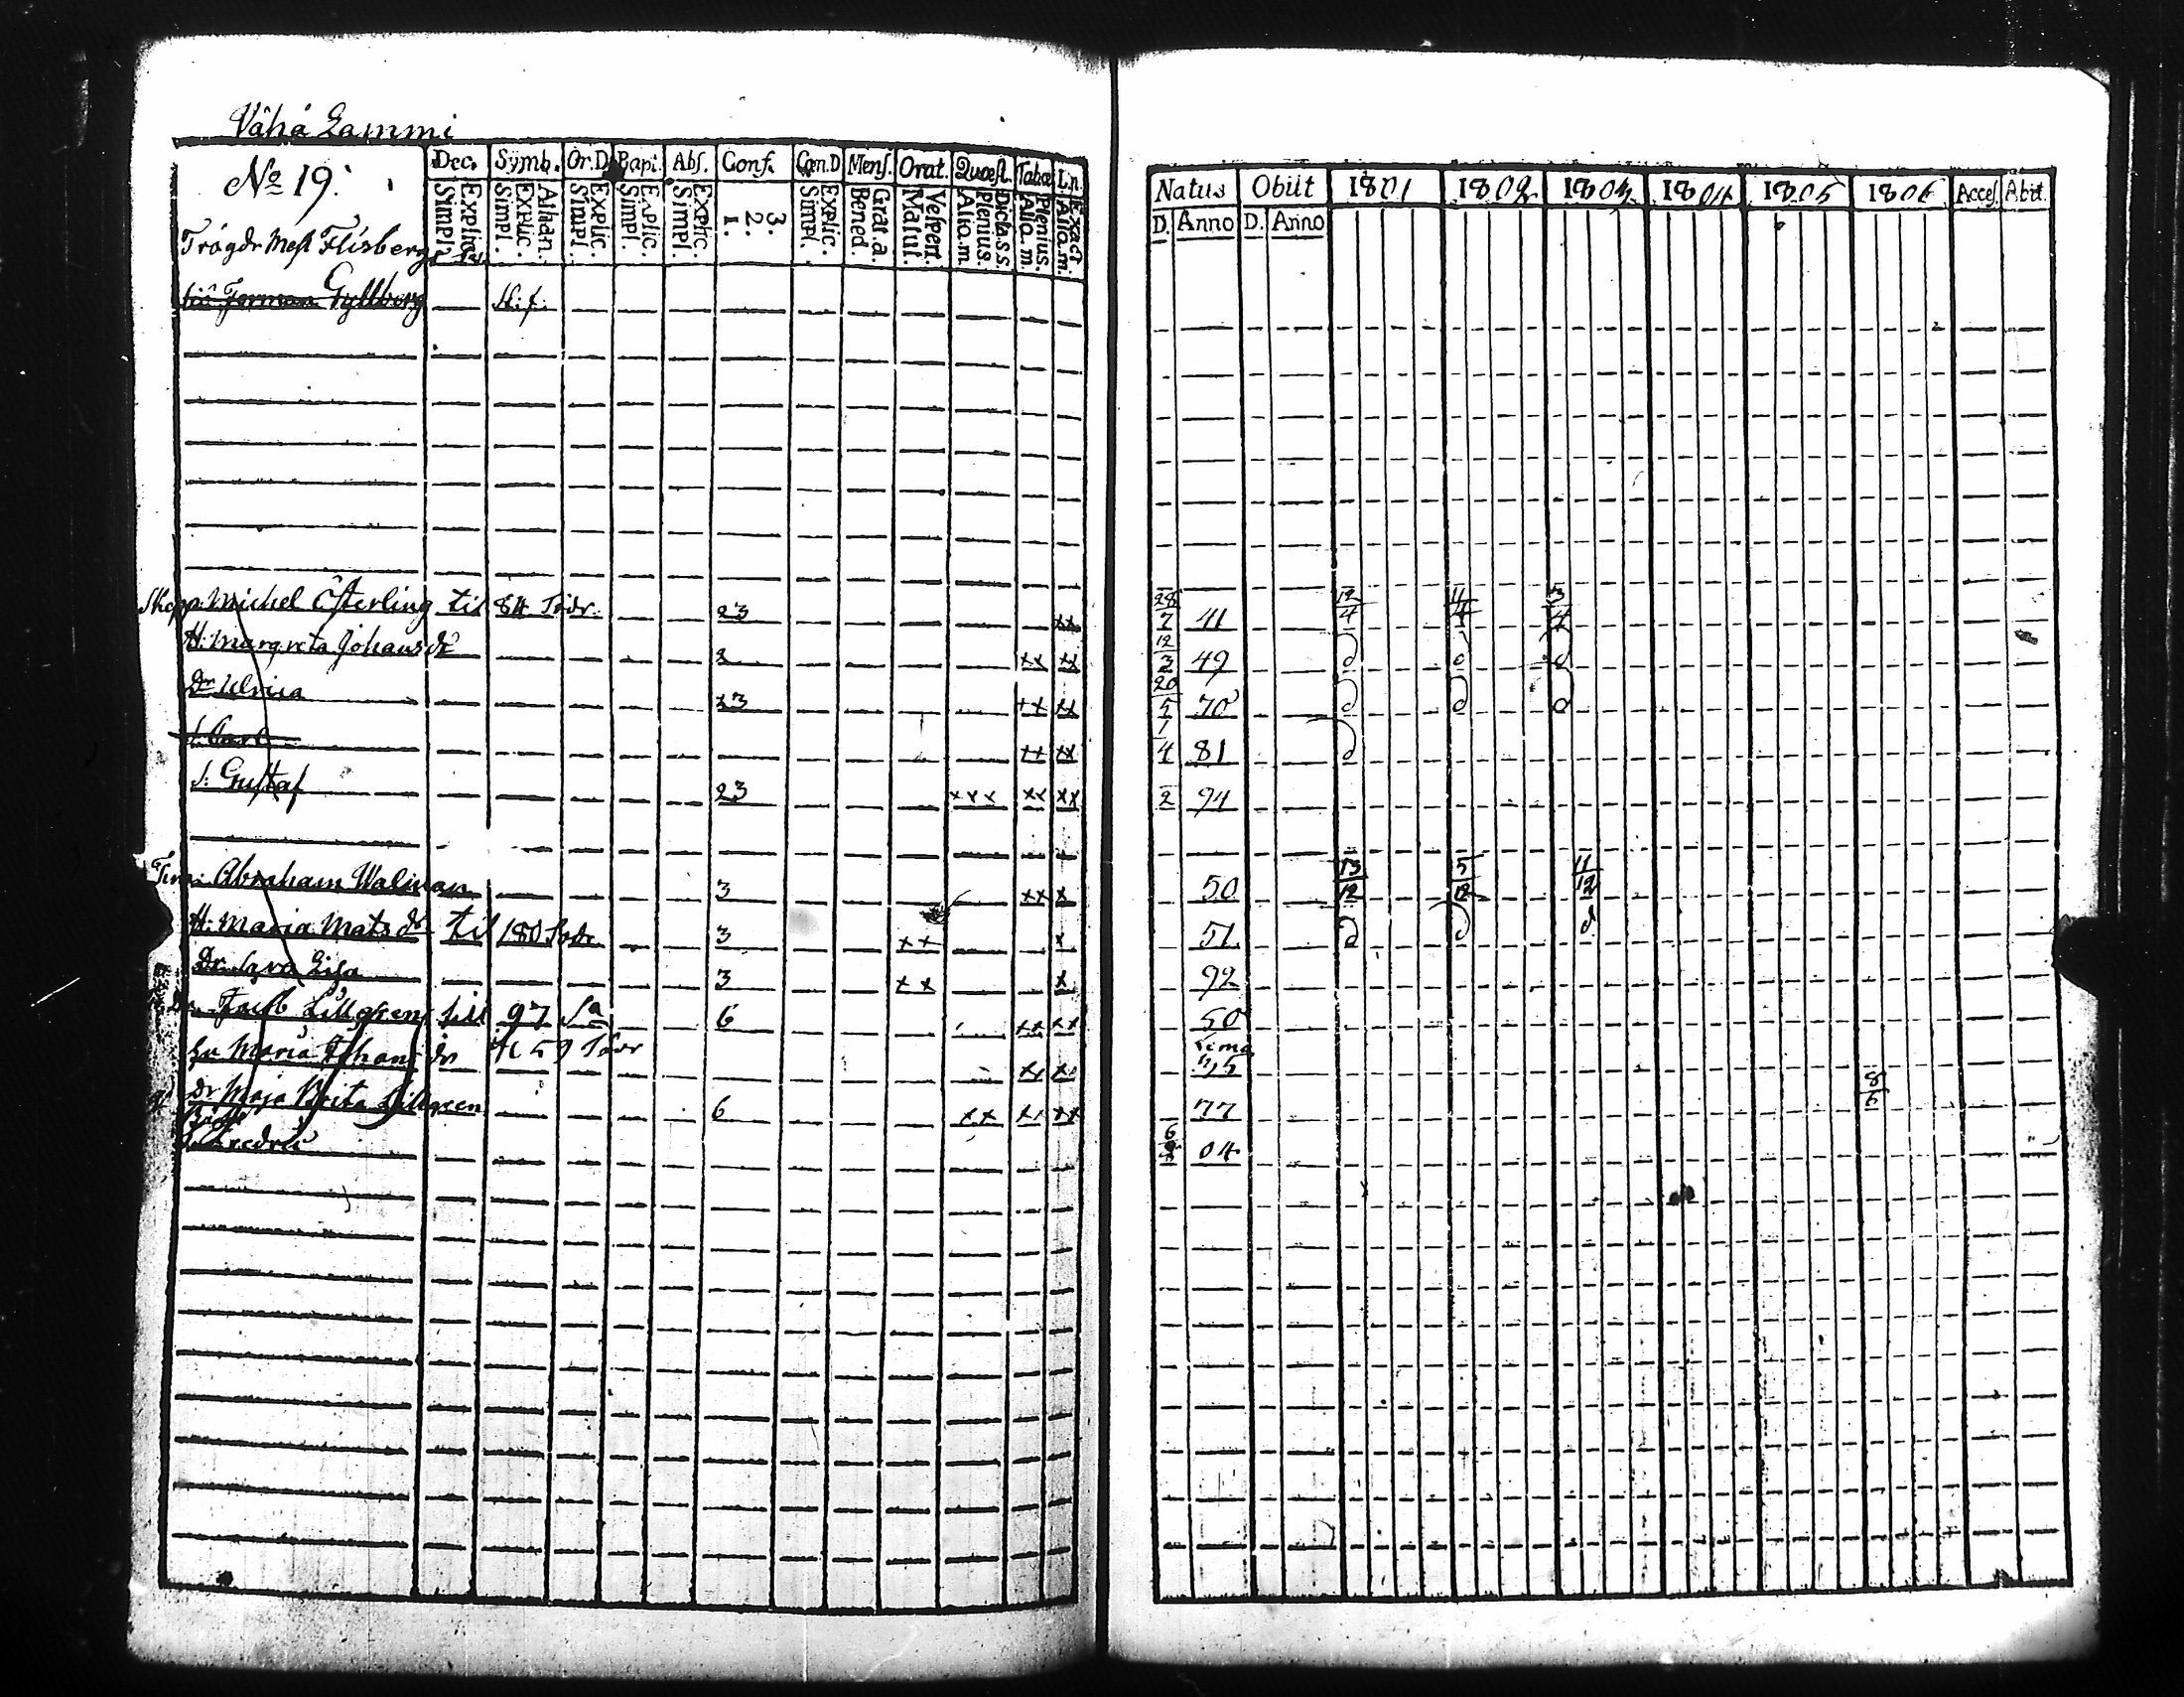 Vähä Lammi
No 19.
Dec. Symb. Or.D. Bapt. Abs. Conf. Cœn.D Mens. Orat. Quæst. Tabæ L.n.
Simpl. Explic. Simpl. Explic. Athan. Simpl. Explic. Simpl. Explic. Simpl. Explic. 1. 2. 3. Simpl. Explic. Bened. Grat.a. Matut. Vespert. Alio.m. Plenius. Dicta.s.s. Alia.m. Plenius. Alia.m. Exact.
Natus Obiit 1801 1802 1803 1804 1805 1806 Acces. Abit.
D. Anno D. Anno
Trägdr Mest Flisberg
Gyllberg
Michel Österling til 84 23 xx 28/7 41 12/4 11/4 3/4
H. Margreta Johans dr xx xx 12/3 49
Dr Ulrica 23 xx xx 20/5 70
S. Carl xx xx 1/4 81
S. Gustaf 23 xxx xx xx 2 94
Abraham Walman 3 xx x 50 13/12 5/12 11/12
H. Maria Mats dr til 180 3 xx x 51
Dr Eva Lisa 3 xx x 92
Lillgren till 97 6 xx xx 50
hu Maria Johans dr 59 xx
Dr Maja Brita Lillgreen 6 xx xx xx 77 8/6
Fredric 04